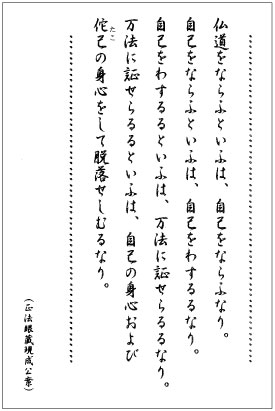 仏道をならふといふは、自己をならふなり。
自己をならふといふは、自己をわするるなり。
自己をわするるといふは、万法に証せらるるなり。
万法に証せらるるといふは、自己の身心および
侘己の身心をして脱落せしむるなり。
たこ
(正法眼蔵現成公案)